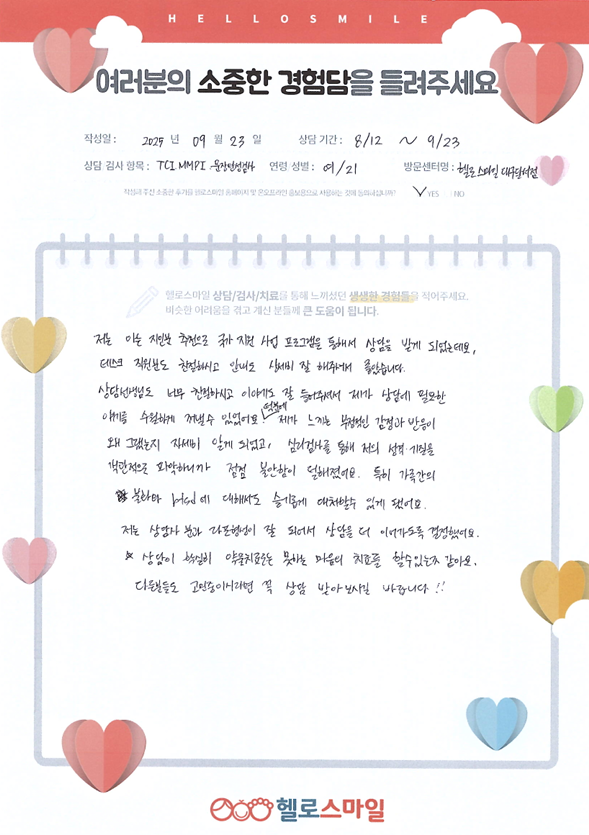 HELLOSMILE
여러분의 소중한 경험담을 들려주세요
작성일 : 2025 년 09 월 23 일 상담 기간 : 8/12 ~ 9/23
상담 검사 항목 : TCI MMPI 문장완성검사 연령 성별 : 여/21 방문센터명 : 헬로스마일 대구달서점
작성해 주신 소중한 후기를 헬로스마일 홈페이지 및 온오프라인 홍보용으로 사용하는 것에 동의하십니까? ✓YES NO
헬로스마일 상담/검사/치료를 통해 느끼셨던 생생한 경험들을 적어주세요.
비슷한 어려움을 겪고 계신 분들께 큰 도움이 됩니다.
저는 아는 지인분 추천으로 국가 지원 사업 프로그램을 통해서 상담을 받게 되었는데요,
데스크 직원분도 친절하시고 안내도 상세히 잘 해주셔서 좋았습니다.
상담선생님도 너무 친절하시고 이야기도 잘 들어주셔서 제가 상담에 필요한
얘기를 수월하게 꺼낼수 있었어요. 덕분에 제가 느끼는 부정적인 감정과 반응이
왜 그랬는지 자세히 알게 되었고, 심리검사를 통해 저의 성격·기질을
객관적으로 파악하니까 점점 불안함이 덜해졌어요. 특히 가족간의
불화와 ptsd에 대해서도 슬기롭게 대처할수 있게 됐어요.
저는 상담사 분과 라포형성이 잘 되어서 상담을 더 이어가도록 결정했어요.
상담이 확실히 약물치료로는 못하는 마음의 치료를 할수있는것 같아요.
다른분들도 고민중이시라면 꼭 상담 받아보시길 바랍니다!!
헬로스마일